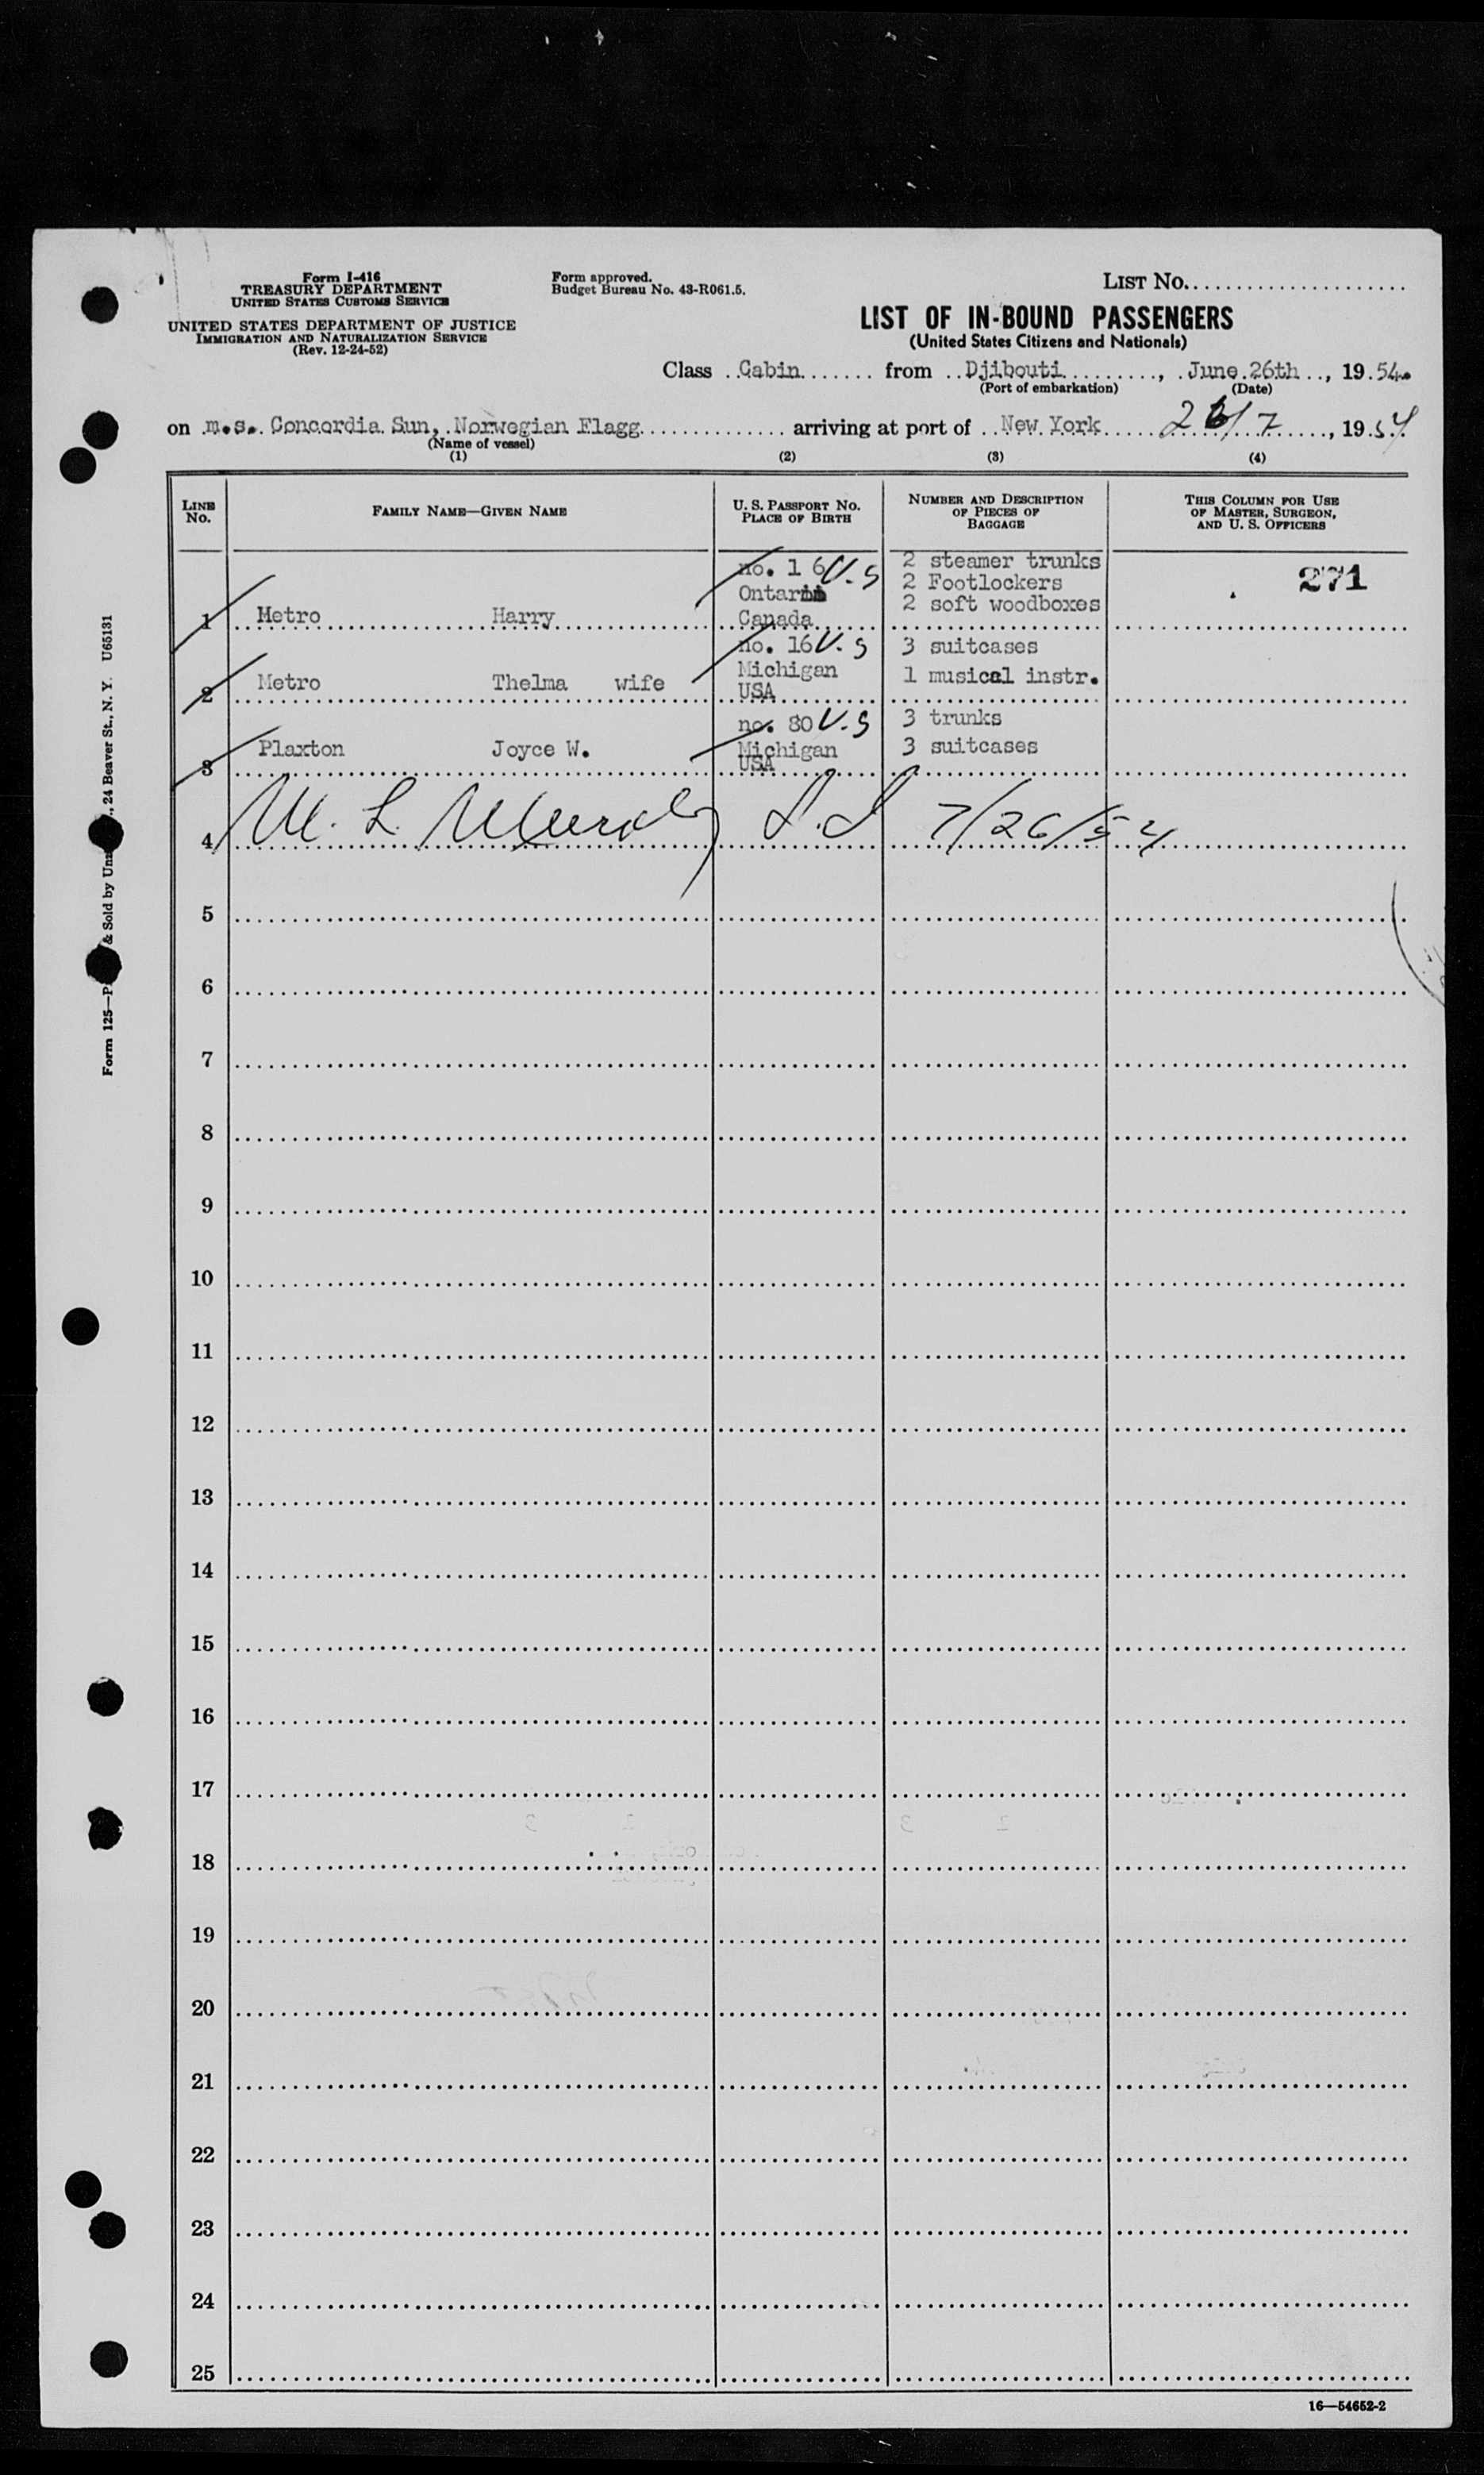 Form I-416
TREASURY DEPARTMENT
UNITED STATES CUSTOMS SERVICE
UNITED STATES DEPARTMENT OF JUSTICE
IMMIGRATION AND NATURALIZATION SERVICE
(Rev. 12-24-52)
Form approved.
Budget Bureau No. 43-R061.5.
LIST NO.
LIST OF IN-BOUND PASSENGERS
(United States Citizens and Nationals)
Class Cabin from Djibouti, June 26th, 1954.
(Port of embarkation) (Date)
on m.s. Concordia Sun, Norwegian Flagg arriving at port of New York 26/7, 1954
(Name of vessel)
(1) (2) (3) (4)
LINE NO.
FAMILY NAME—GIVEN NAME
U. S. PASSPORT NO.
PLACE OF BIRTH
NUMBER AND DESCRIPTION
OF PIECES OF
BAGGAGE
THIS COLUMN FOR USE
OF MASTER, SURGEON,
AND U. S. OFFICERS
271
1 Metro Harry
no. 1 6 U.S
Ontario
Canada
2 steamer trunks
2 Footlockers
2 soft woodboxes
2 Metro Thelma wife
no. 16 U.S
Michigan
USA
3 suitcases
1 musical instr.
3 Plaxton Joyce W.
no. 80 U.S
Michigan
USA
3 trunks
3 suitcases
4 M. L. 7/26/54
5
6
7
8
9
10
11
12
13
14
15
16
17
18
19
20
21
22
23
24
25
16—54652-2
Form 125— & Sold by 24 Beaver St., N. Y. U65131